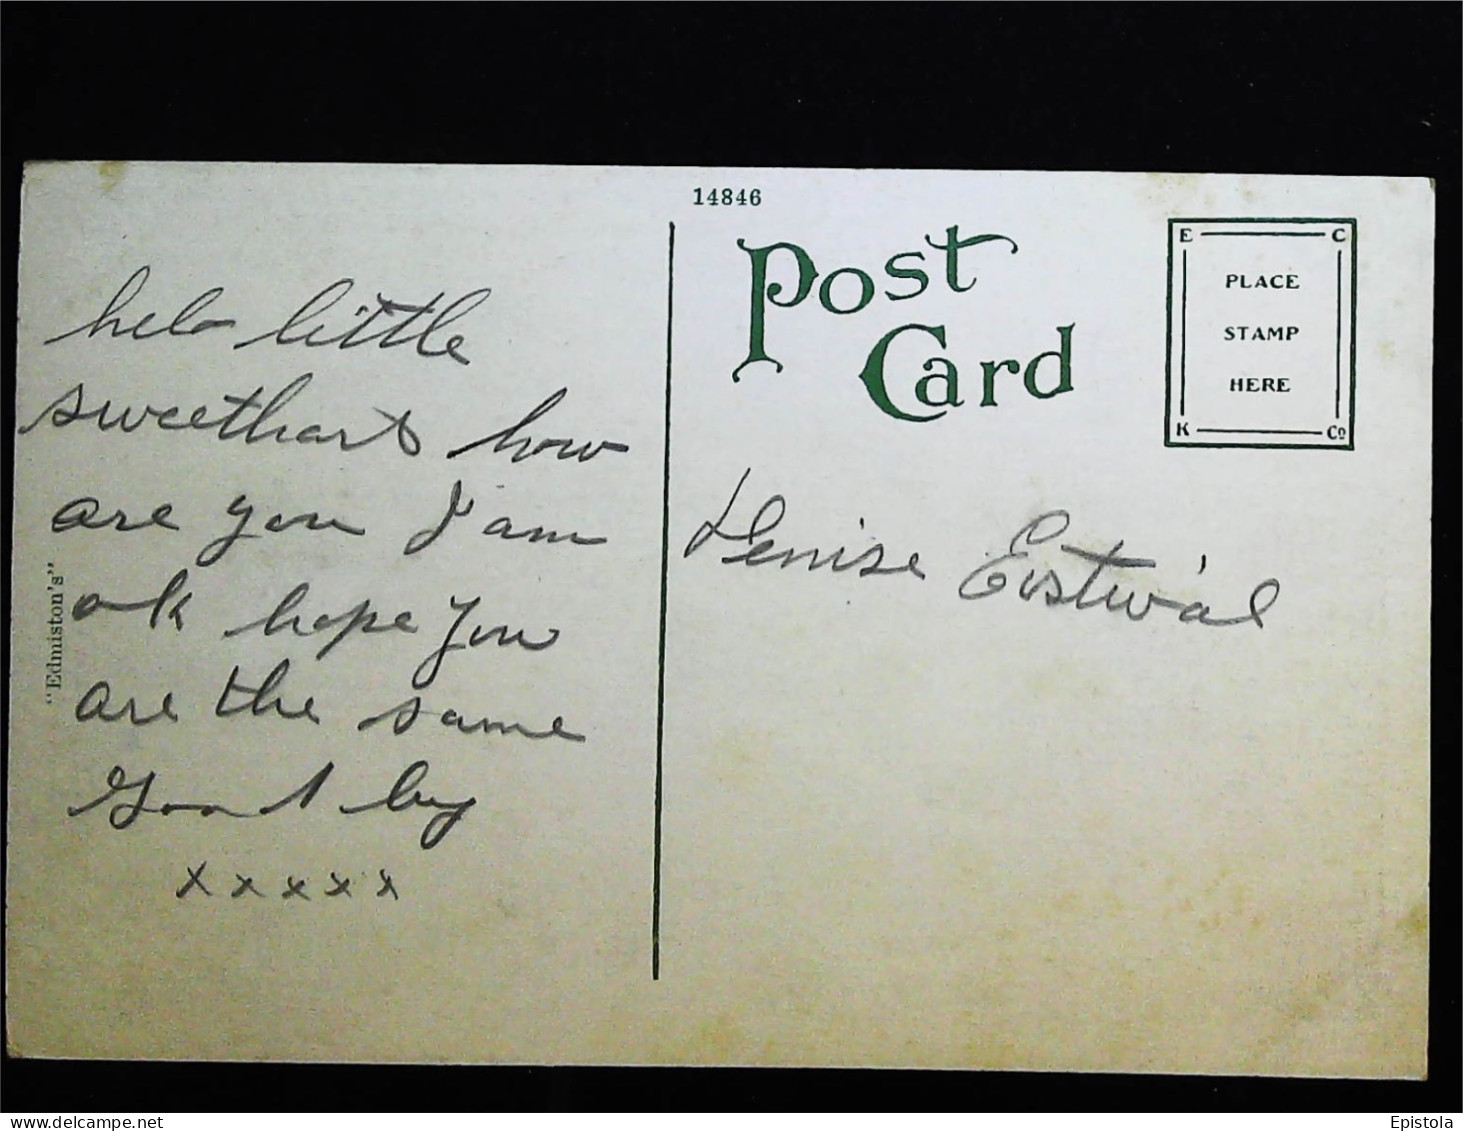 14846
Post
Card
E C
PLACE
STAMP
HERE
K Co
"Edmiston's"
helo little
sweethart how
are you I am
ok hope you
are the same
Good by
x x x x x
Denise
www.delcampe.net
Epistola